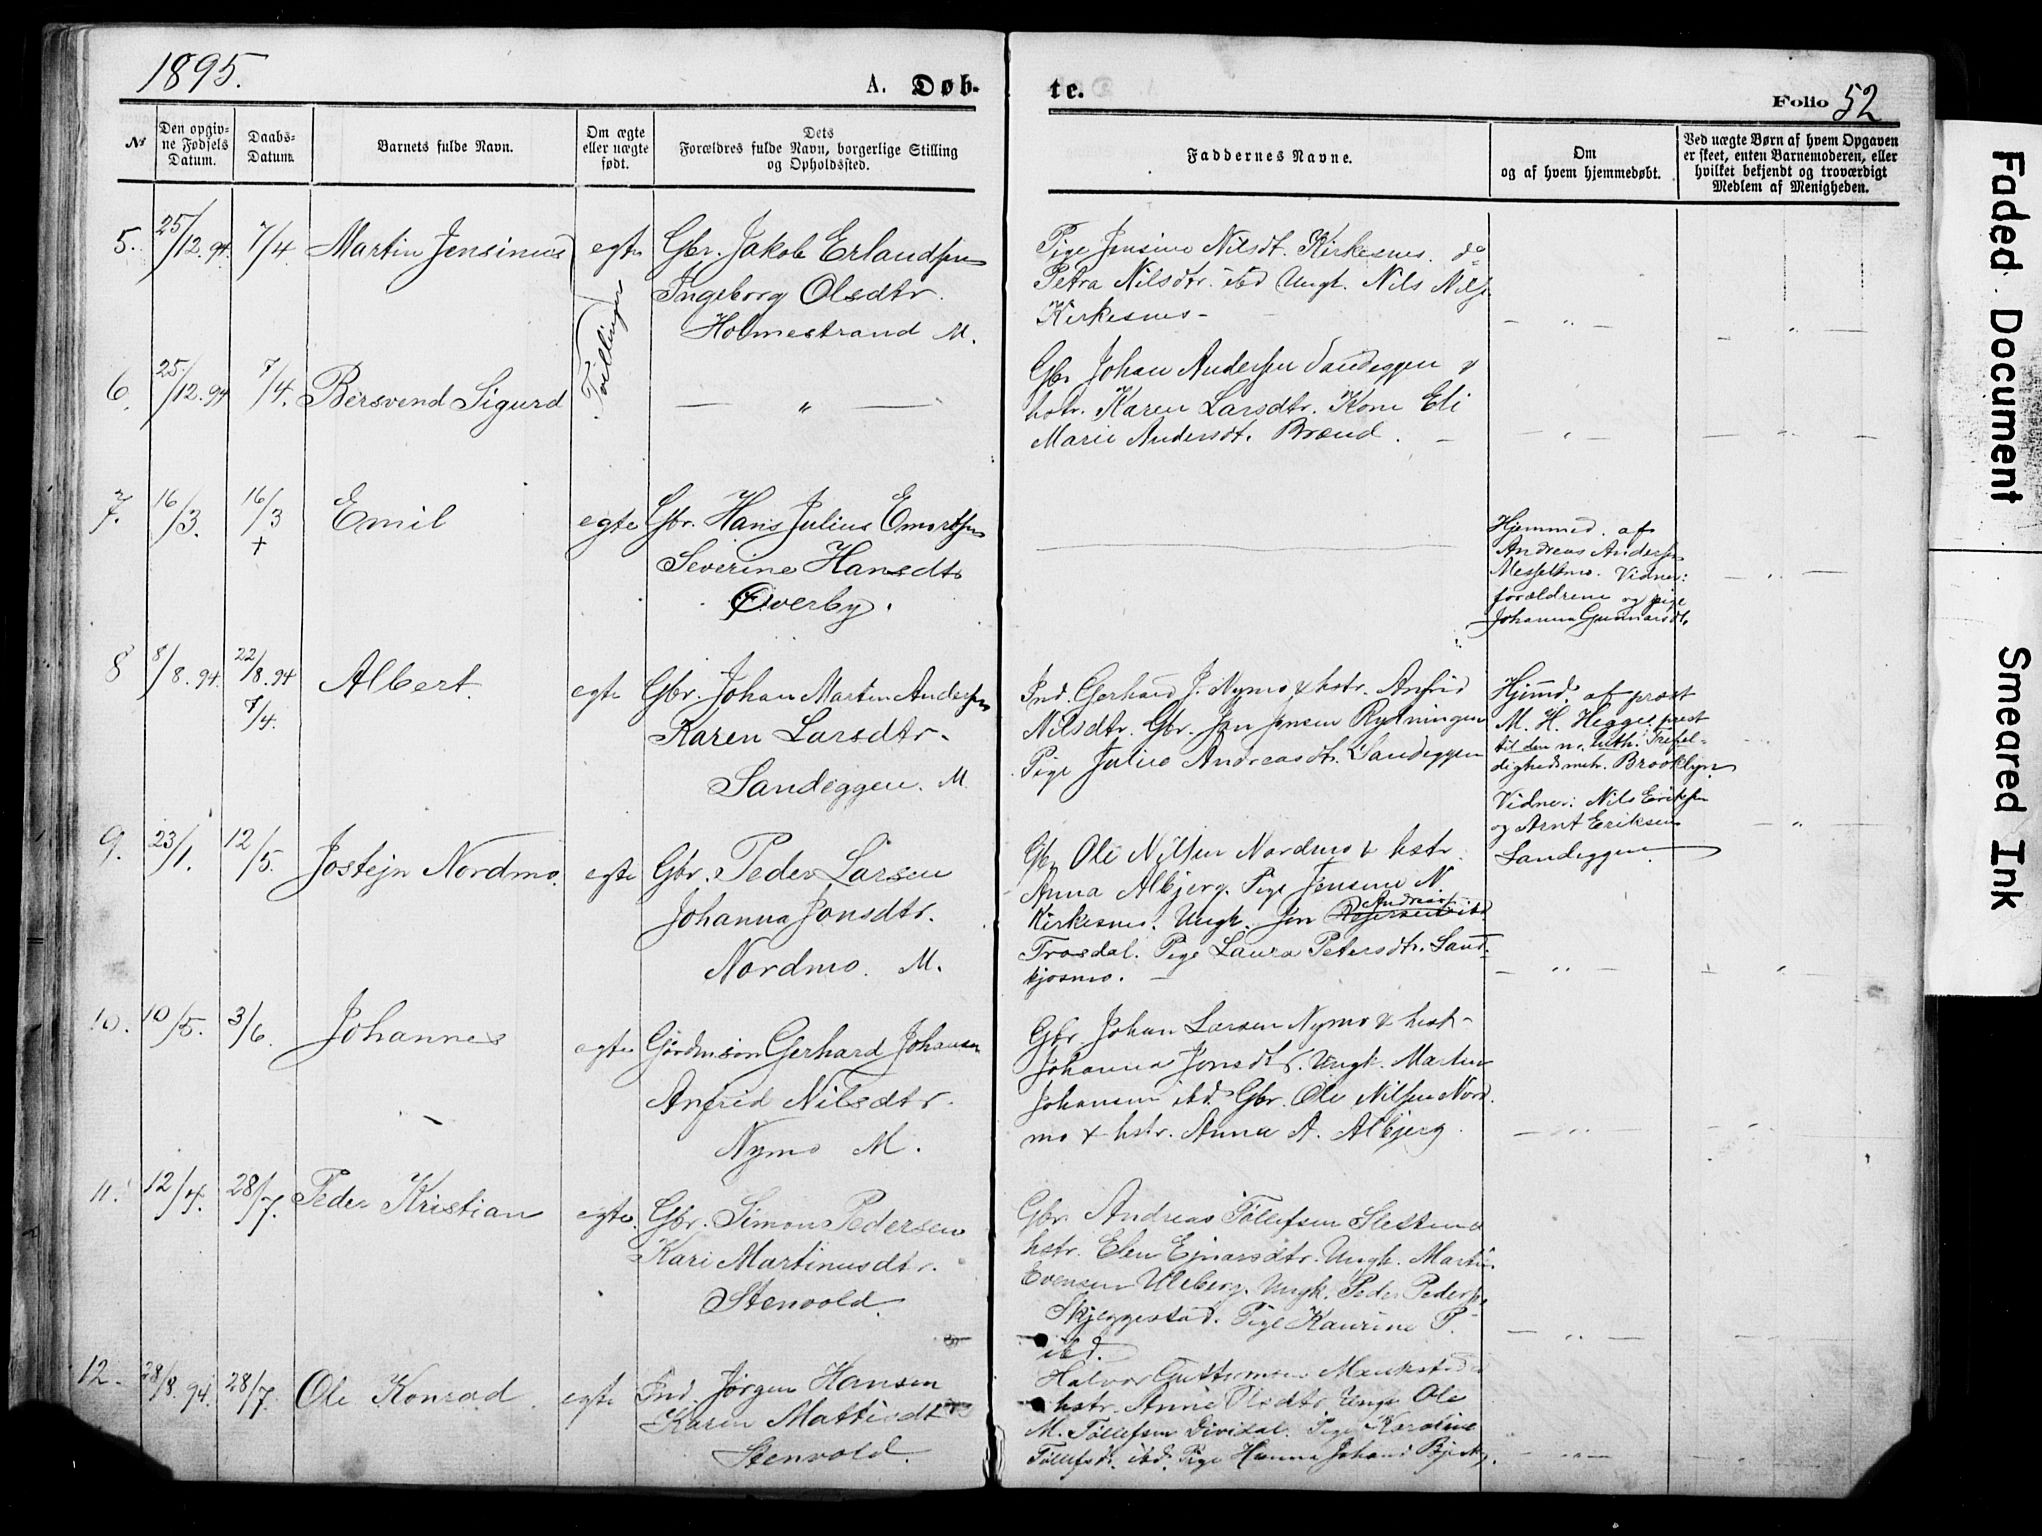 1895.
A. Døb-
te.
Folio 52
No
Den opgiv-
ne Fødsels
Datum.
Daabs-
Datum.
Barnets fulde Navn.
Om ægte
eller uægte
født.
Dets
Forældres fulde Navn, borgerlige Stilling
og Opholdssted.
Faddernes Navne.
Om
og af hvem hjemmedøbt.
Ved uægte Børn af hvem Opgaven
er skeet, enten Barnemoderen, eller
hvilket bekjendt og troværdigt
Medlem af Menigheden.
5. 25/12.94 7/4 Martin Jensinus egte Gbr. Jakob Erlandsen
Ingeborg Olsdtr.
Holmestrand M.
Tvillinger
Pige Jensine Nilsdt. Kirkesnes. do
Petra Nilsdtr. ibd Ungk. Nils Nilss
Kirkesnes -
— " —
6. 25/12.94 7/4. Bersvend Sigurd — " —
Gbr Johan Andersen Sandeggen &
hstr. Karen Larsdtr. Kone Eli
Marie Andersdt. Brænd.
— " —
7. 16/3. 16/3 Emil egte Gbr. Hans Julius Emortsen
+
Severine Hansdtr
Øverby.
Hjemmed. af
Andreas Andersen
Messeltmo. Vidner:
forældrene og pige
Johanna Gunnarsdt.
— " —
8 8/8.94 22/8.94 Albert egte Gbr. Johan Martin Andersen
7/4.
Karen Larsdtr.
Sandeggen. M.
Ind. Gerhard J. Nymo & hstr. Anfrid
Nilsdtr. Gbr. Jon Jensen Rydningen
Pige Julie Andreasdt. Sandeggen
Hjmd. af prest
M. H. Hegge, prest
til den n. luth. Trefol-
dighedsmh. Brooklyn.
Vidner: Nils Eriksen
og Arnt Eriksen
Sandeggen.
— " —
9. 23/1. 12/5. Jostejn Nordmo. egte Gbr. Peder Larsen
Johanna Jonsdtr.
Nordmo. M.
Gbr Ole Nilsen Nordmo & hstr.
Anna Albjerg. Pige Jensine N.
Kirkesnes. Ungk. Jon Andreas ibd
Trosdal. Pige Laura Petersdtr. Sand-
kjosmo.
— " —
10. 10/5. 3/6. Johannes egte Gårdmsøn Gerhard Johansen
Anfrid Nilsdtr.
Nymo M.
Gbr Johan Larsen Nymo & hust-
Johanna Jonsdtr. Ungk. Martin
Johansen ibd. Gbr. Ole Nilsen Nord
mo & hstr. Anna A. Albjerg.
— " —
11. 12/4. 28/7. Peder Kristian egte. Gbr. Simon Pedersen
Kari Martinusdtr.
Stenvold.
Gbr. Andreas Tollefsen Sletten &
hstr. Elen Ejnarsdtr. Ungk. Martin
Evensen Uleberg. Ungk. Peder Peders
Skjeggestad. Pige Kaurine P.
ibd.
— " —
12. 28/8.94. 28/7. Ole Konrad. egte Ind. Jørgen Hansen
Karen Mattisdtr
Stenvold.
Halvor Guttormsen Maukstad &
hstr. Anne Olsdtr Ungk Ole
M. Tollefsen Dividal. Pige Karoline
Tollefsdt. ibd. Pige Hanna Johansd
— " —
Faded Document
Smeared Ink